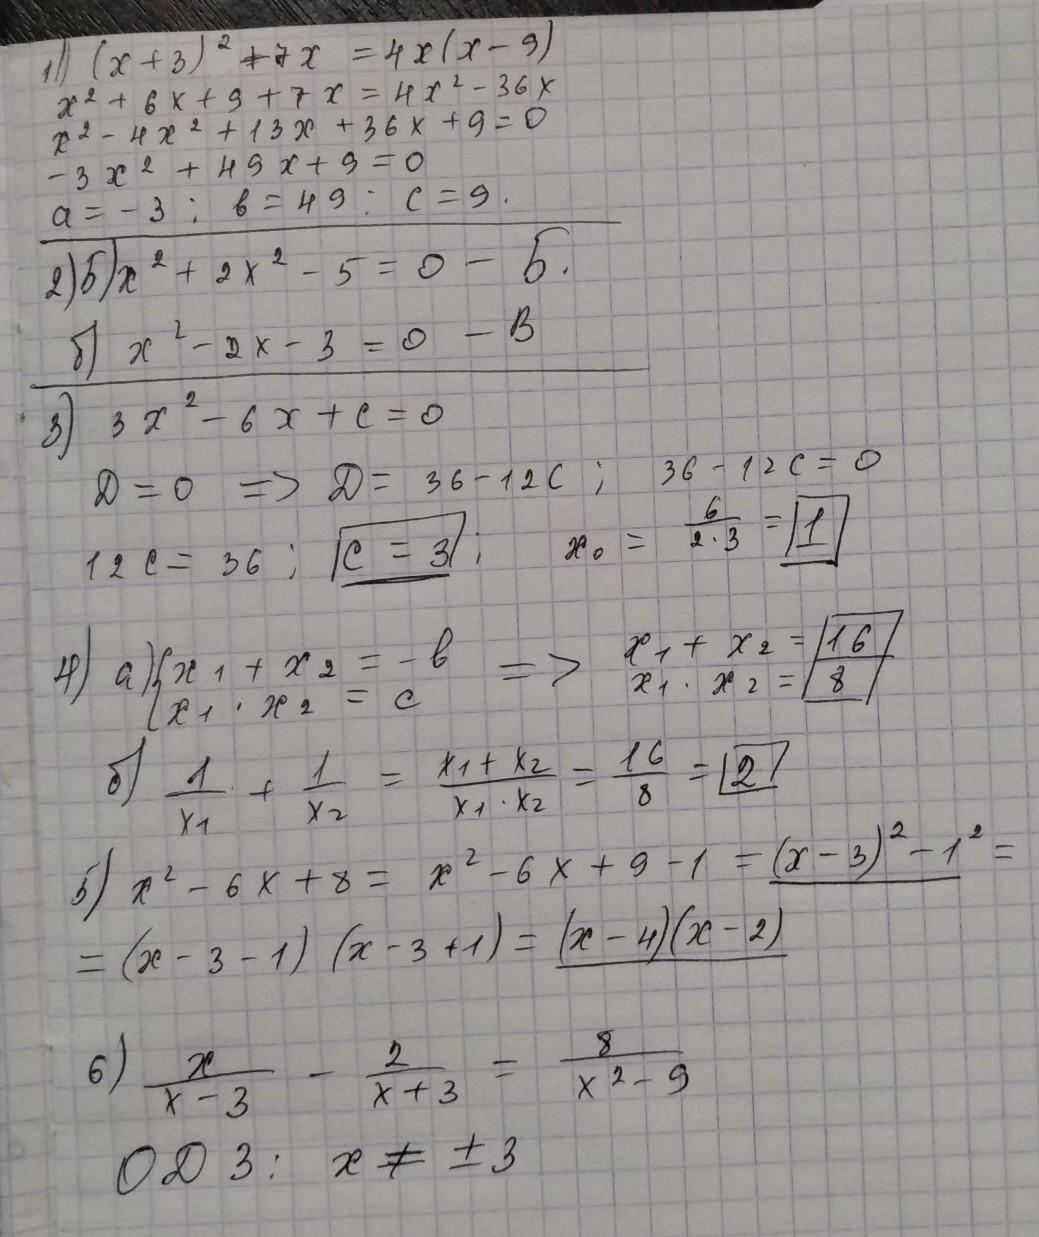 1) (x+3)² +7x = 4x(x-9)
x² + 6x + 9 + 7x = 4x² - 36x
x² - 4x² + 13x + 36x + 9 = 0
-3x² + 49x + 9 = 0
a = -3 ; в = 49 : c = 9.
2) Б) x² + 2x² - 5 = 0 - Б.
б) x² - 2x - 3 = 0 - В
3) 3x² - 6x + c = 0
Д = 0 => Д = 36 - 12c ; 36 - 12c = 0
12c = 36 ; c = 3 ; x₀ = 6/(2·3) = 1
4) а) { x₁ + x₂ = -в => x₁ + x₂ = 16
x₁ · x₂ = c x₁ · x₂ = 8
б) 1/x₁ + 1/x₂ = (x₁ + x₂)/(x₁ · x₂) = 16/8 = 2
5) x² - 6x + 8 = x² - 6x + 9 - 1 = (x - 3)² - 1² =
= (x - 3 - 1) (x - 3 + 1) = (x - 4)(x - 2)
6) x/(x - 3) - 2/(x + 3) = 8/(x² - 9)
ОДЗ: x ≠ ±3